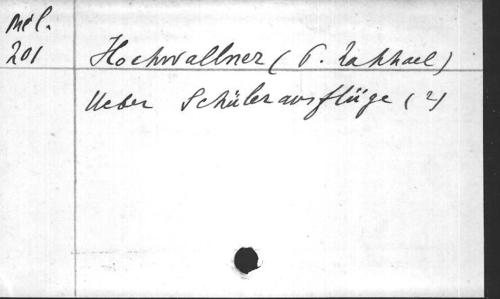 Mél.
201
Hochwallner (P. Raphael)
Ueber Schülerausflüge (2)